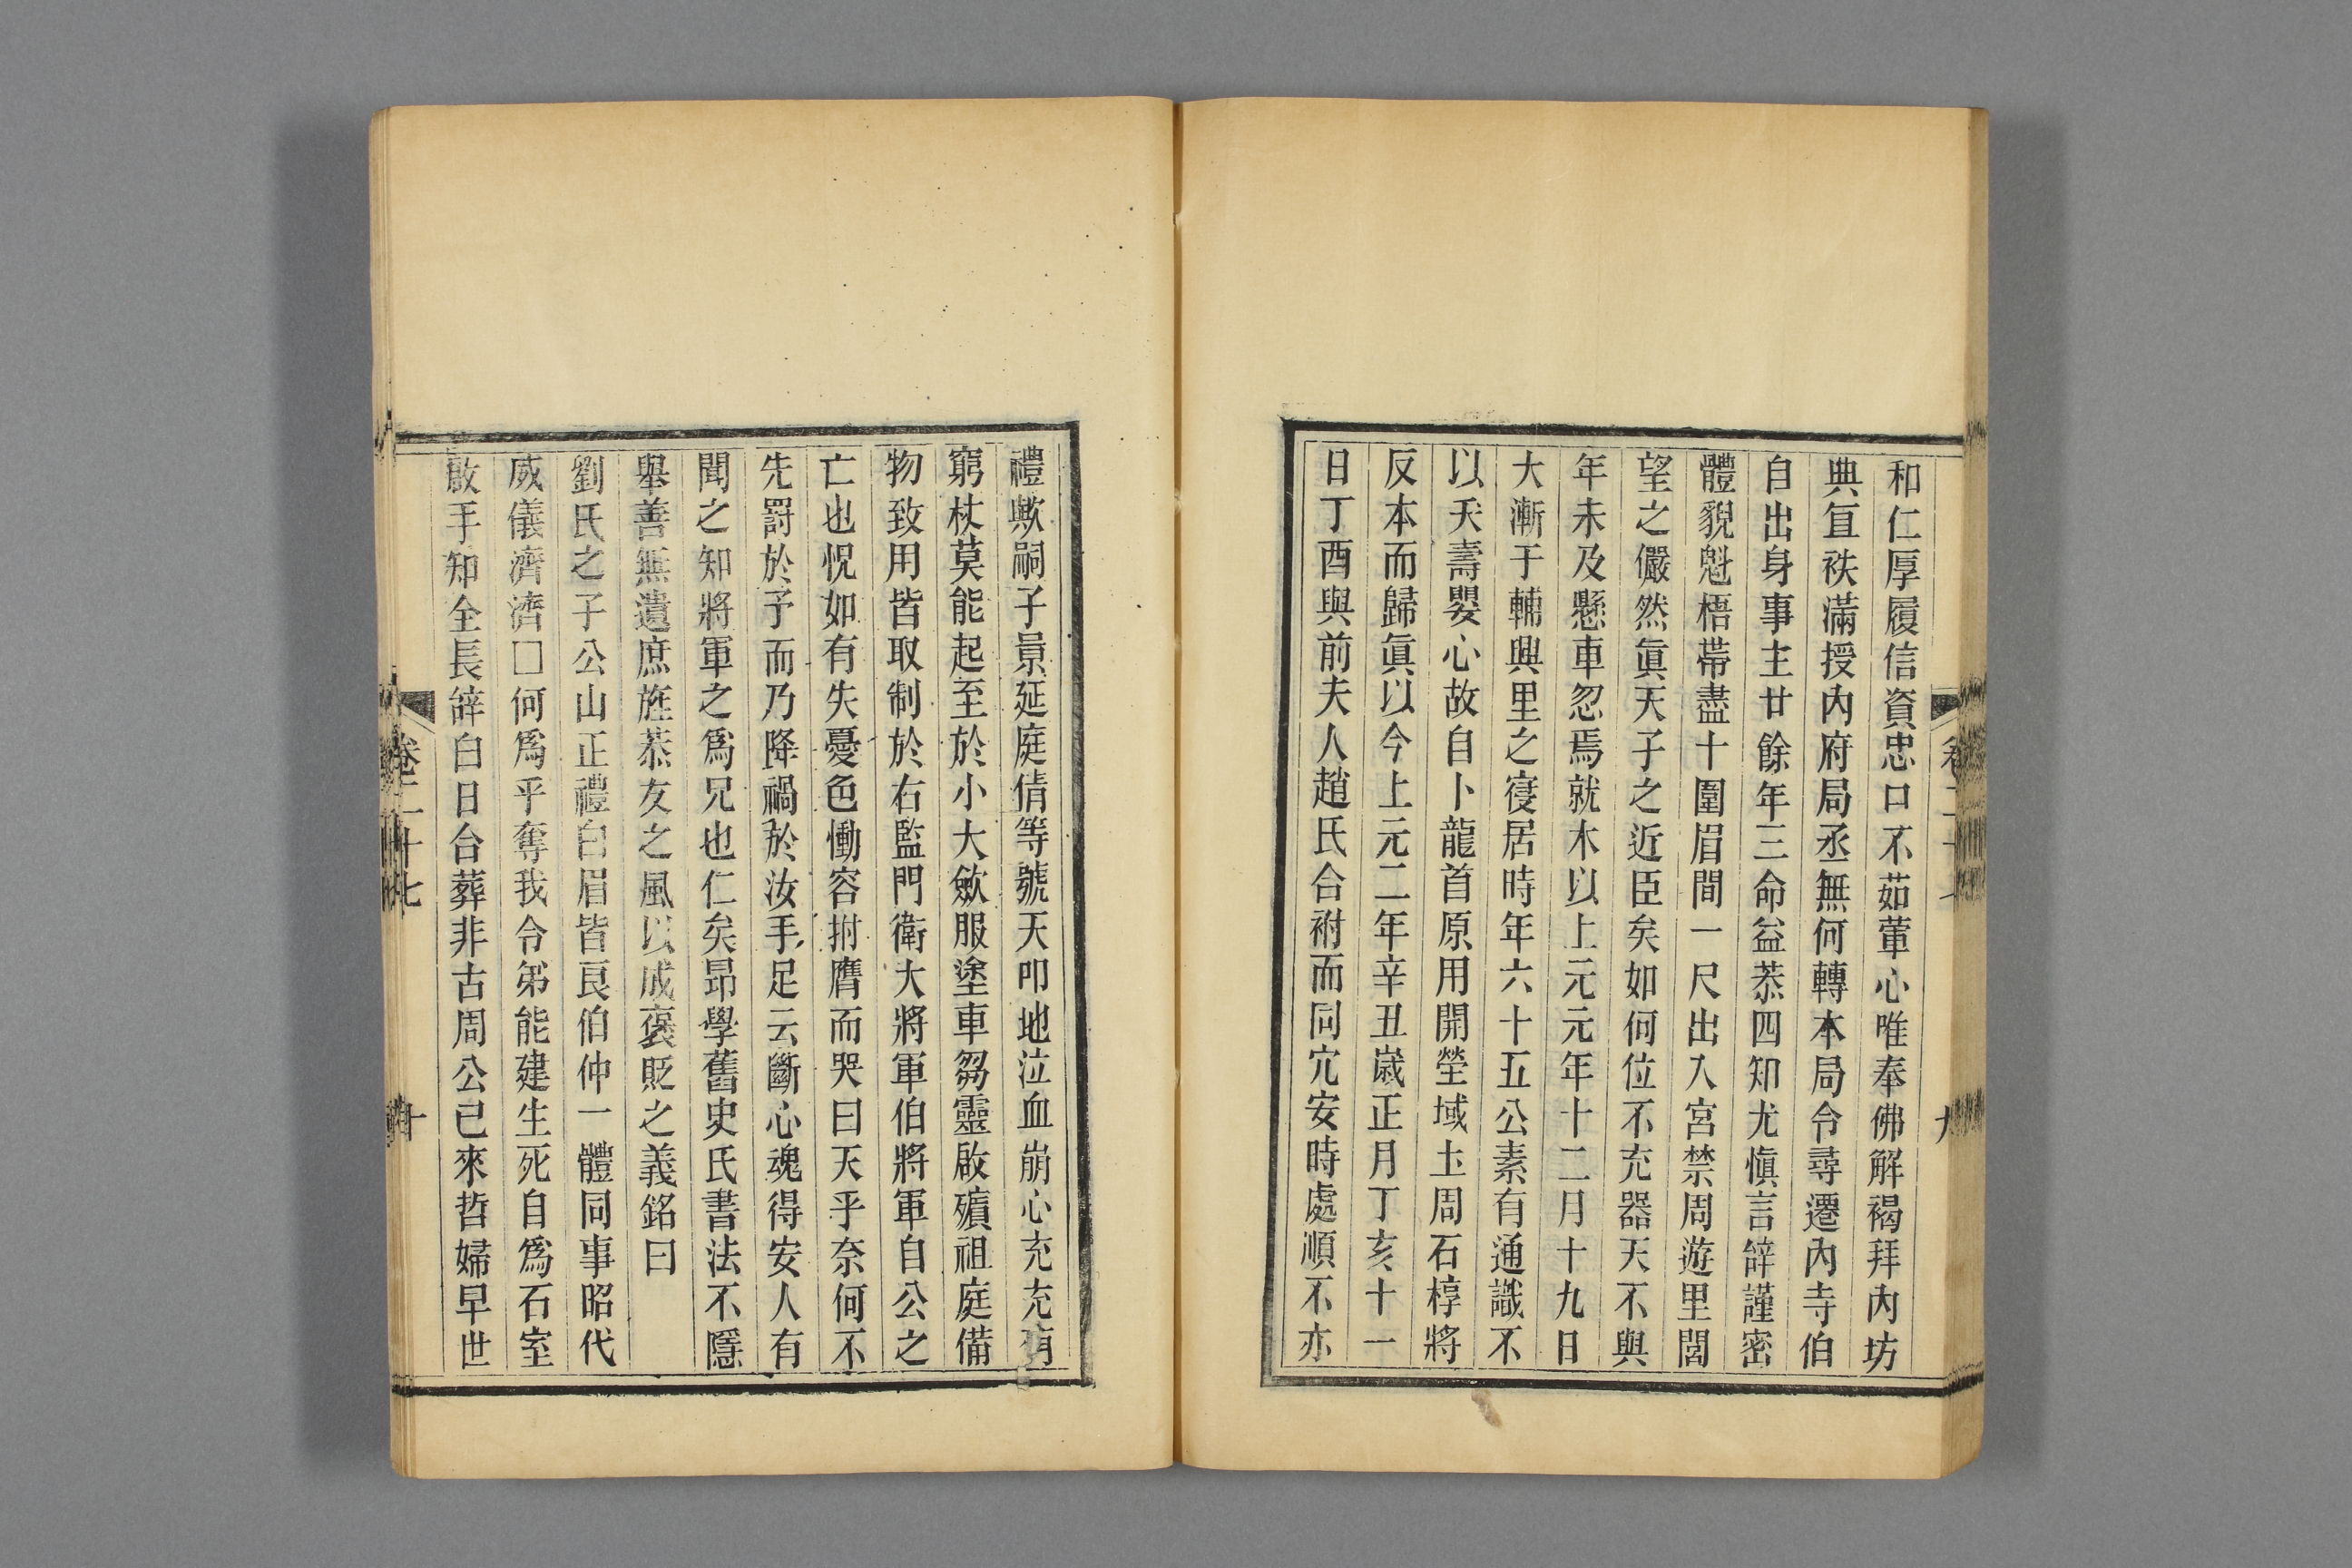 和仁厚履信資忠口不茹葷心唯奉佛解褐拜內坊
典直袟滿授內府局丞無何轉本局令尋遷內寺伯
自出身事主廿餘年三命益恭四知尤愼言辝謹密
體貌魁梧帶盡十圍眉間一尺出入宮禁周遊里閭
望之儼然眞天子之近臣矣如何位不充器天不與
年未及懸車忽焉就木以上元元年十二月十九日
大漸于輔興里之寑居時年六十五公素有通識不
以夭壽嬰心故自卜龍首原用開塋域土周石椁將
反本而歸眞以今上元二年辛丑歲正月丁亥十一
日丁酉與前夫人趙氏合祔而同穴安時處順不亦
禮歟嗣子景延庭倩等號天叩地泣血崩心充充有
窮杖莫能起至於小大斂服塗車芻靈啟殯祖庭備
物致用皆取制於右監門衛大將軍伯將軍自公之
亡也怳如有失憂色慟容拊膺而哭曰天乎奈何不
先罸於予而乃降禍於汝手足云斷心魂得安人有
聞之知將軍之爲兄也仁矣昂學舊史氏書法不隱
舉善無遺庶旌恭友之風以成褒貶之義銘曰
劉氏之子公山正禮白眉皆良伯仲一體同事昭代
威儀濟濟□何爲乎奪我令弟能建生死自爲石室
啟手知全長辝白日合葬非古周公已來哲婦早世
卷二十七
十
九